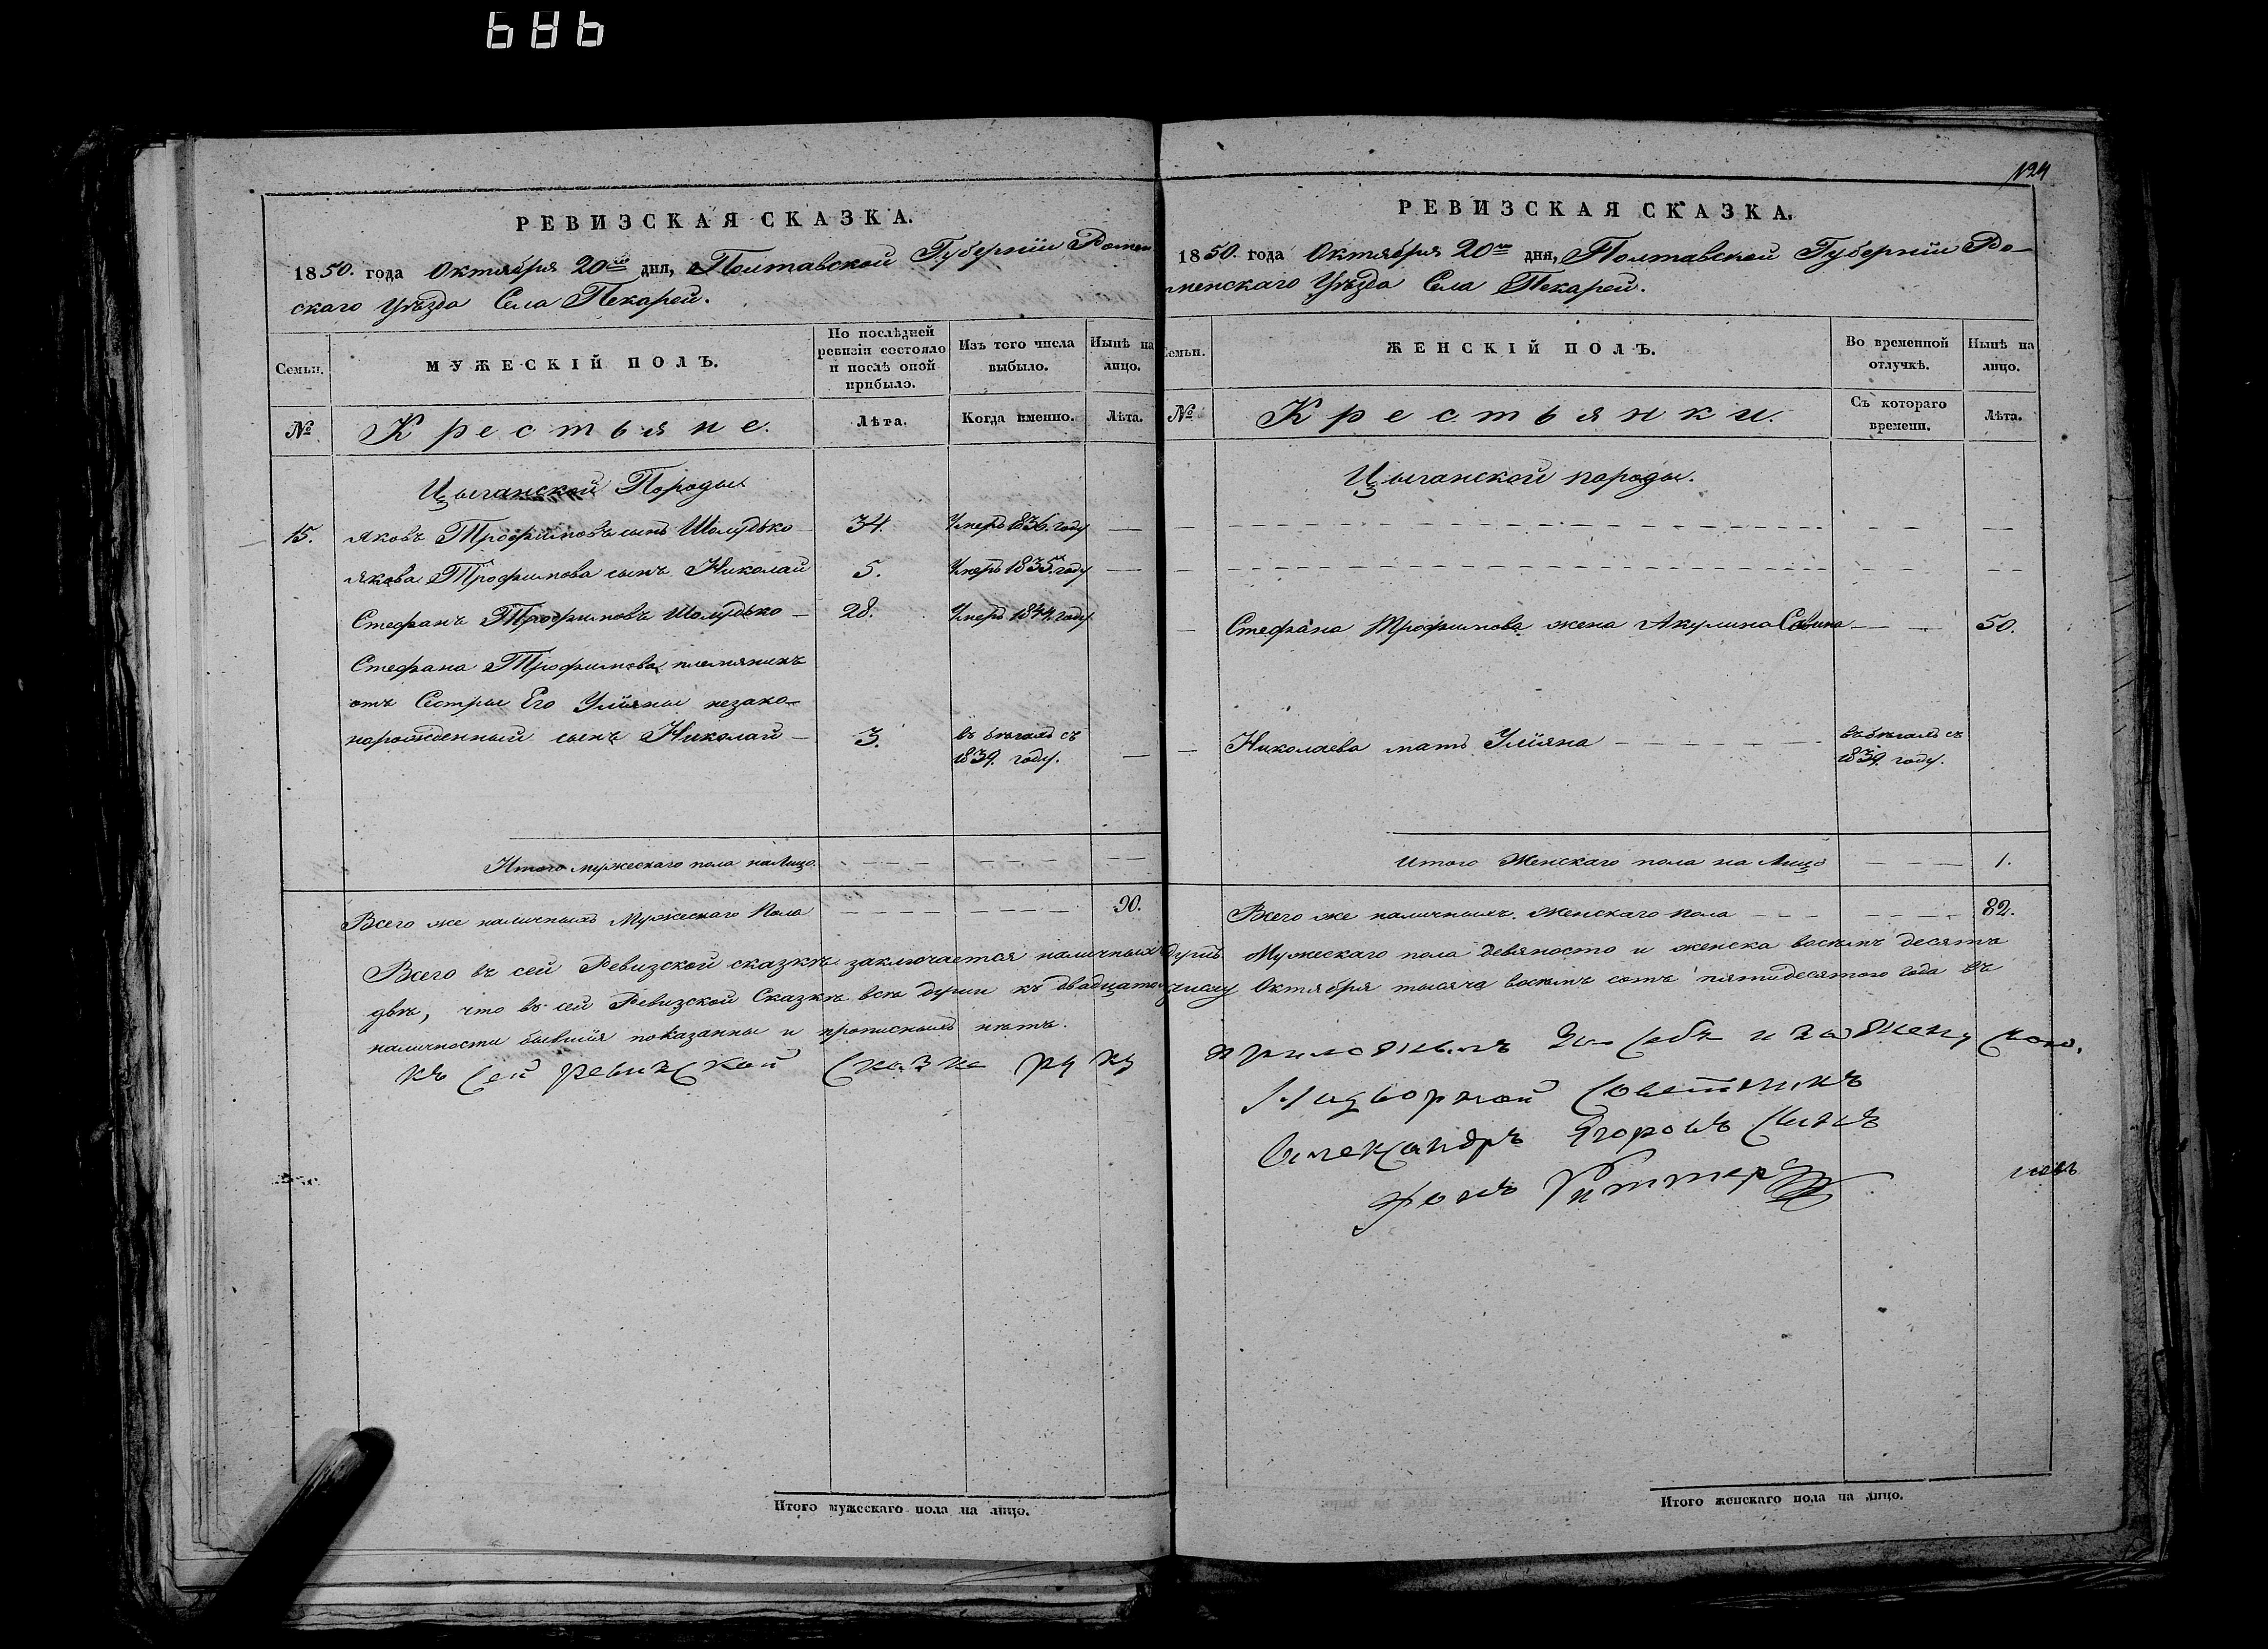 686
124
РЕВИЗСКАЯ СКАЗКА.
1850. года Октября 20го дня, Полтавской Губерніи Ромен
скаго Уѣзда Села Пекарей.
Семьи.
МУЖЕСКІЙ ПОЛЪ.
По послѣдней ревизіи состояло и послѣ оной прибыло.
Изъ того числа выбыло.
Нынѣ на лицо.
№
Крестьяне.
Лѣта.
Когда именно.
Лѣта.
Цыганской Породы
15. Яковъ Трофимовъ сынъ Шолудько 34. Умеръ 1836. году
Якова Трофимова сынъ Николай 5. Умеръ 1835. году
Стефанъ Трофимовъ Шолудько 28. Умеръ 1844. году
Стефана Трофимова племяникъ
отъ Сестры Его Уліяны незако-
норожденный сынъ Николай 3. въ бѣгахъ съ
1839. году.
Итого мужескаго пола на Лицо.
Всего же наличныхъ Мужескаго Пола 90.
РЕВИЗСКАЯ СКАЗКА.
1850. года Октября 20го дня, Полтавской Губерніи Ро-
менскаго Уѣзда Села Пекарей.
Семьи.
ЖЕНСКІЙ ПОЛЪ.
Во временной отлучкѣ.
Нынѣ на лицо.
№
Крестьянки.
Съ котораго времени.
Лѣта.
Цыганской породы.
Стефана Трофимова жена Акулина Савина 50.
Николаева мать Уліяна въ бѣгахъ съ
1839. году.
Итого Женскаго пола на Лицо 1.
Всего же наличныхъ Женскаго пола 82.
Всего въ сей Ревизской сказкѣ заключается наличныхъ душъ Мужескаго пола девяносто и женска восемъ десятъ
двѣ, что въ сей Ревизской Сказкѣ всѣ души къ двадцатому числу Октября тысяча восемъ сотъ пятидесятого года въ
наличности бывшія показанны и прописныхъ нѣтъ.
Къ сей ревизской сказке руку приложилъ за себя и за жену свою,
Надворной Советникъ
Александръ Егоровъ сынъ
фонъ Риттеръ
Итого мужескаго пола на лицо.
Итого женскаго пола на лицо.